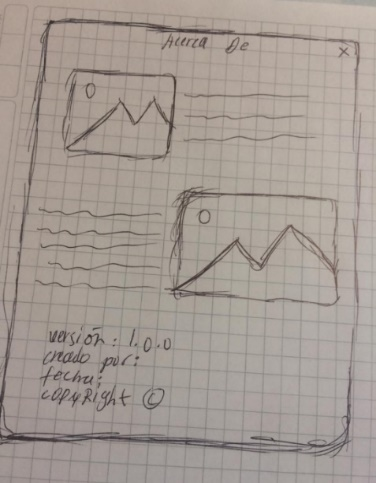 Acerca De
X
versión: 1.0.0
creado por:
fecha:
copyRight ©